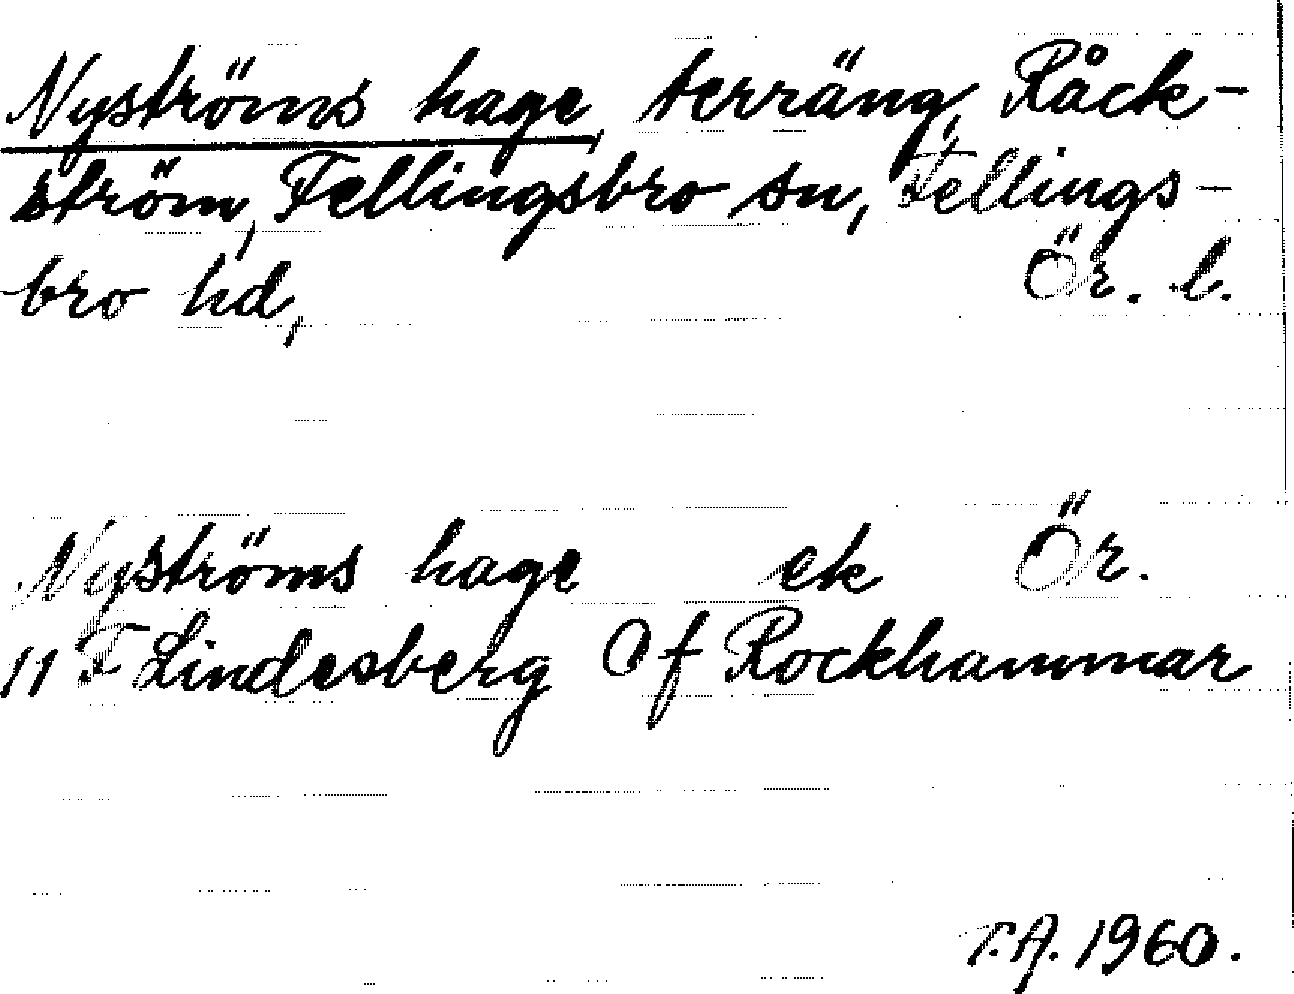 Nyströms hage, terräng, Råck-
ström, Fellingsbro sn, Fellings-
bro hd, Ör. l.
Nyströms hage ek Ör.
11 F Lindesberg 0 f Rockhammar
T.A. 1960.